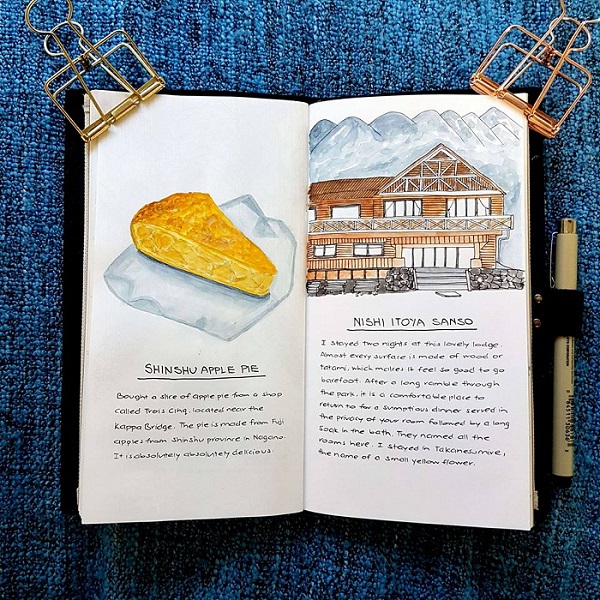 SHINSHU APPLE PIE
Bought a slice of apple pie from a shop
called Trois Cinq, located near the
Kappa Bridge. The pie is made from Fuji
apples from Shinshu province in Nagano.
It is absolutely absolutely delicious.
NISHI ITOYA SANSO
I stayed two nights at this lovely lodge.
Almost every surface is made of wood or
tatami, which makes it feel so good to go
barefoot. After a long ramble through
the park, it is a comfortable place to
return to for a sumptious dinner served in
the privacy of your room followed by a long
soak in the bath. They named all the
rooms here. I stayed in Takanesumire,
the name of a small yellow flower.